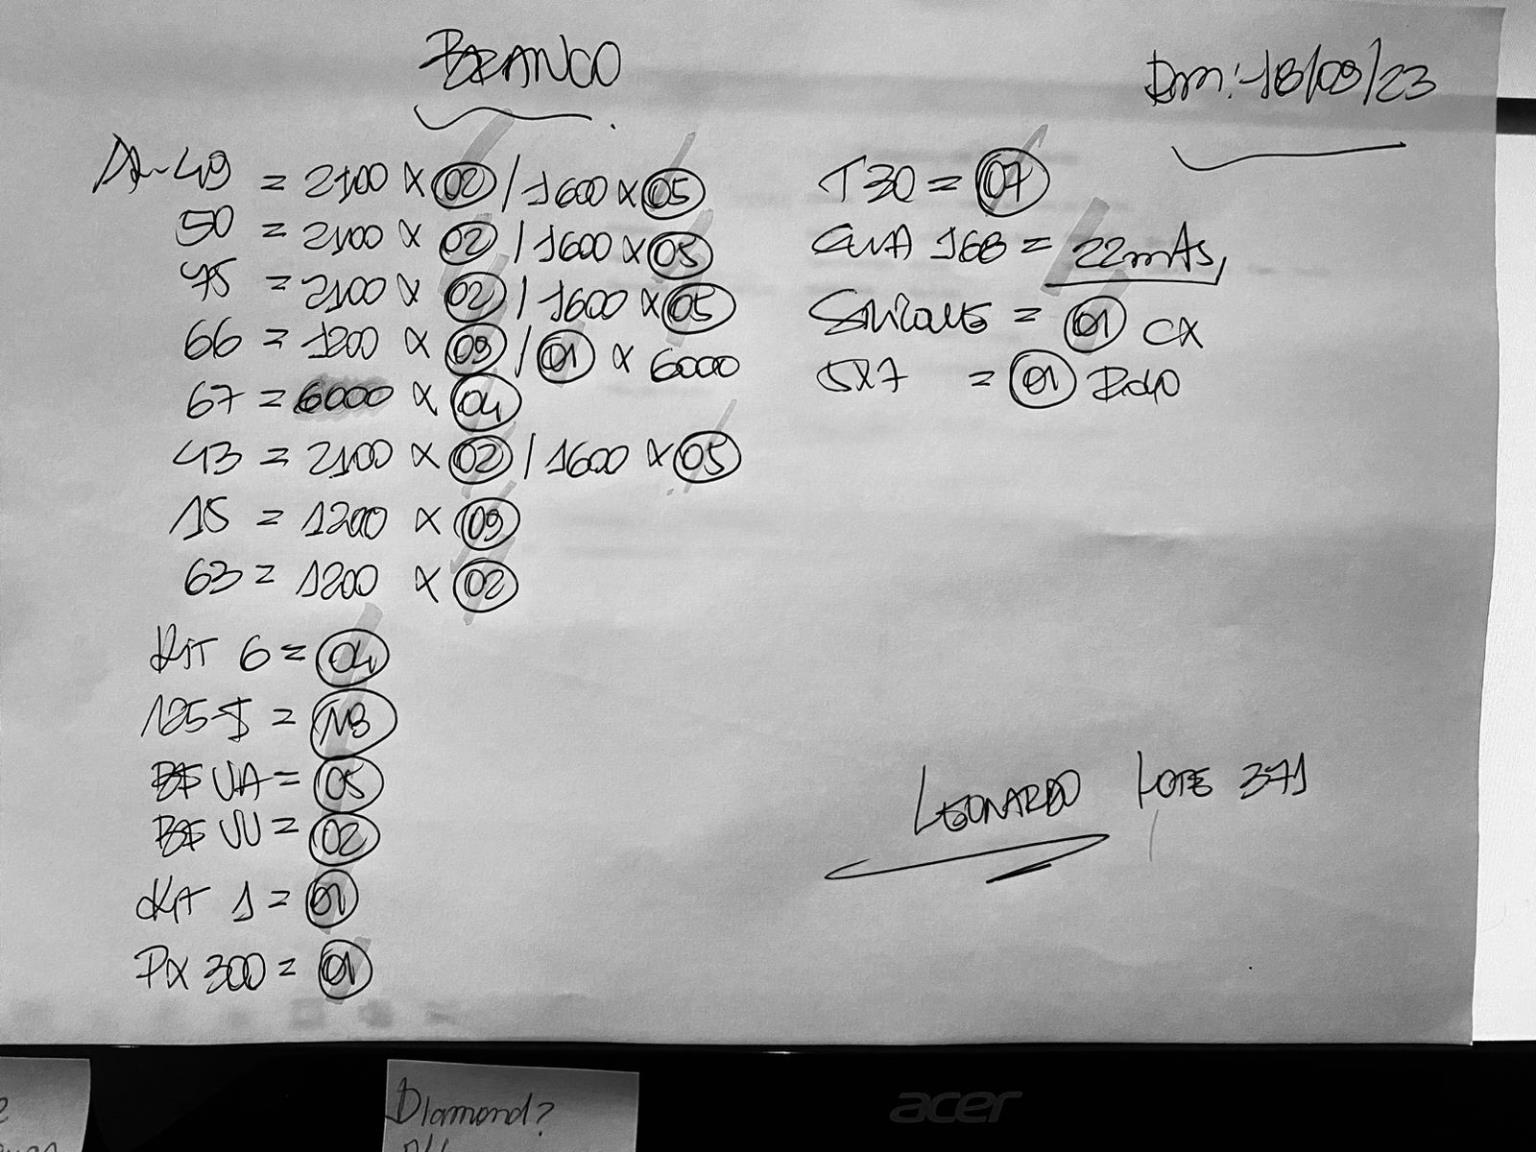 BRANCO
Dm: 18/09/23
DA-49 = 2100 x 02 / 1600 x 05
50 = 2100 x 02 / 1600 x 05
75 = 2100 x 02 / 1600 x 05
66 = 1200 x 09 / 01 x 6000
67 = 6000 x 04
43 = 2100 x 02 / 1600 x 05
15 = 1200 x 09
63 = 1200 x 02
KIT 6 = 04
125-I = 
BF VA = 05
BF VV = 02
KIT 1 = 01
PIX 300 = 01
T30 = 07
GUIA 168 = 22mts,
SILICONE = 01 CX
5X7 = 01 ROLO
LEONARDO LOTE 371
Diamond?
acer